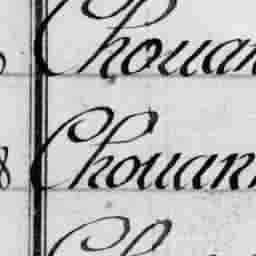 Chouan
Chouann